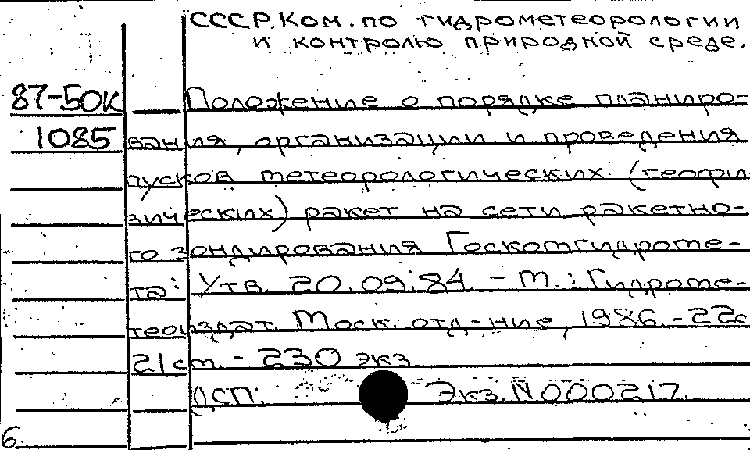 СССР. Ком. по гидрометеорологии
и контролю природной среде.
87-50к Положение о порядке планиро-
1085 вания, организации и проведения
пусков метеорологических (геофи
зических) ракет на сети ракетно-
го зондирования Госкомгидроме-
та: Утв. 20.09.84. - М.: Гидроме-
теоиздат. Моск. отд-ние, 1986. - 22с
21 см. - 230 экз
ДСП. Экз. N 000217.
6